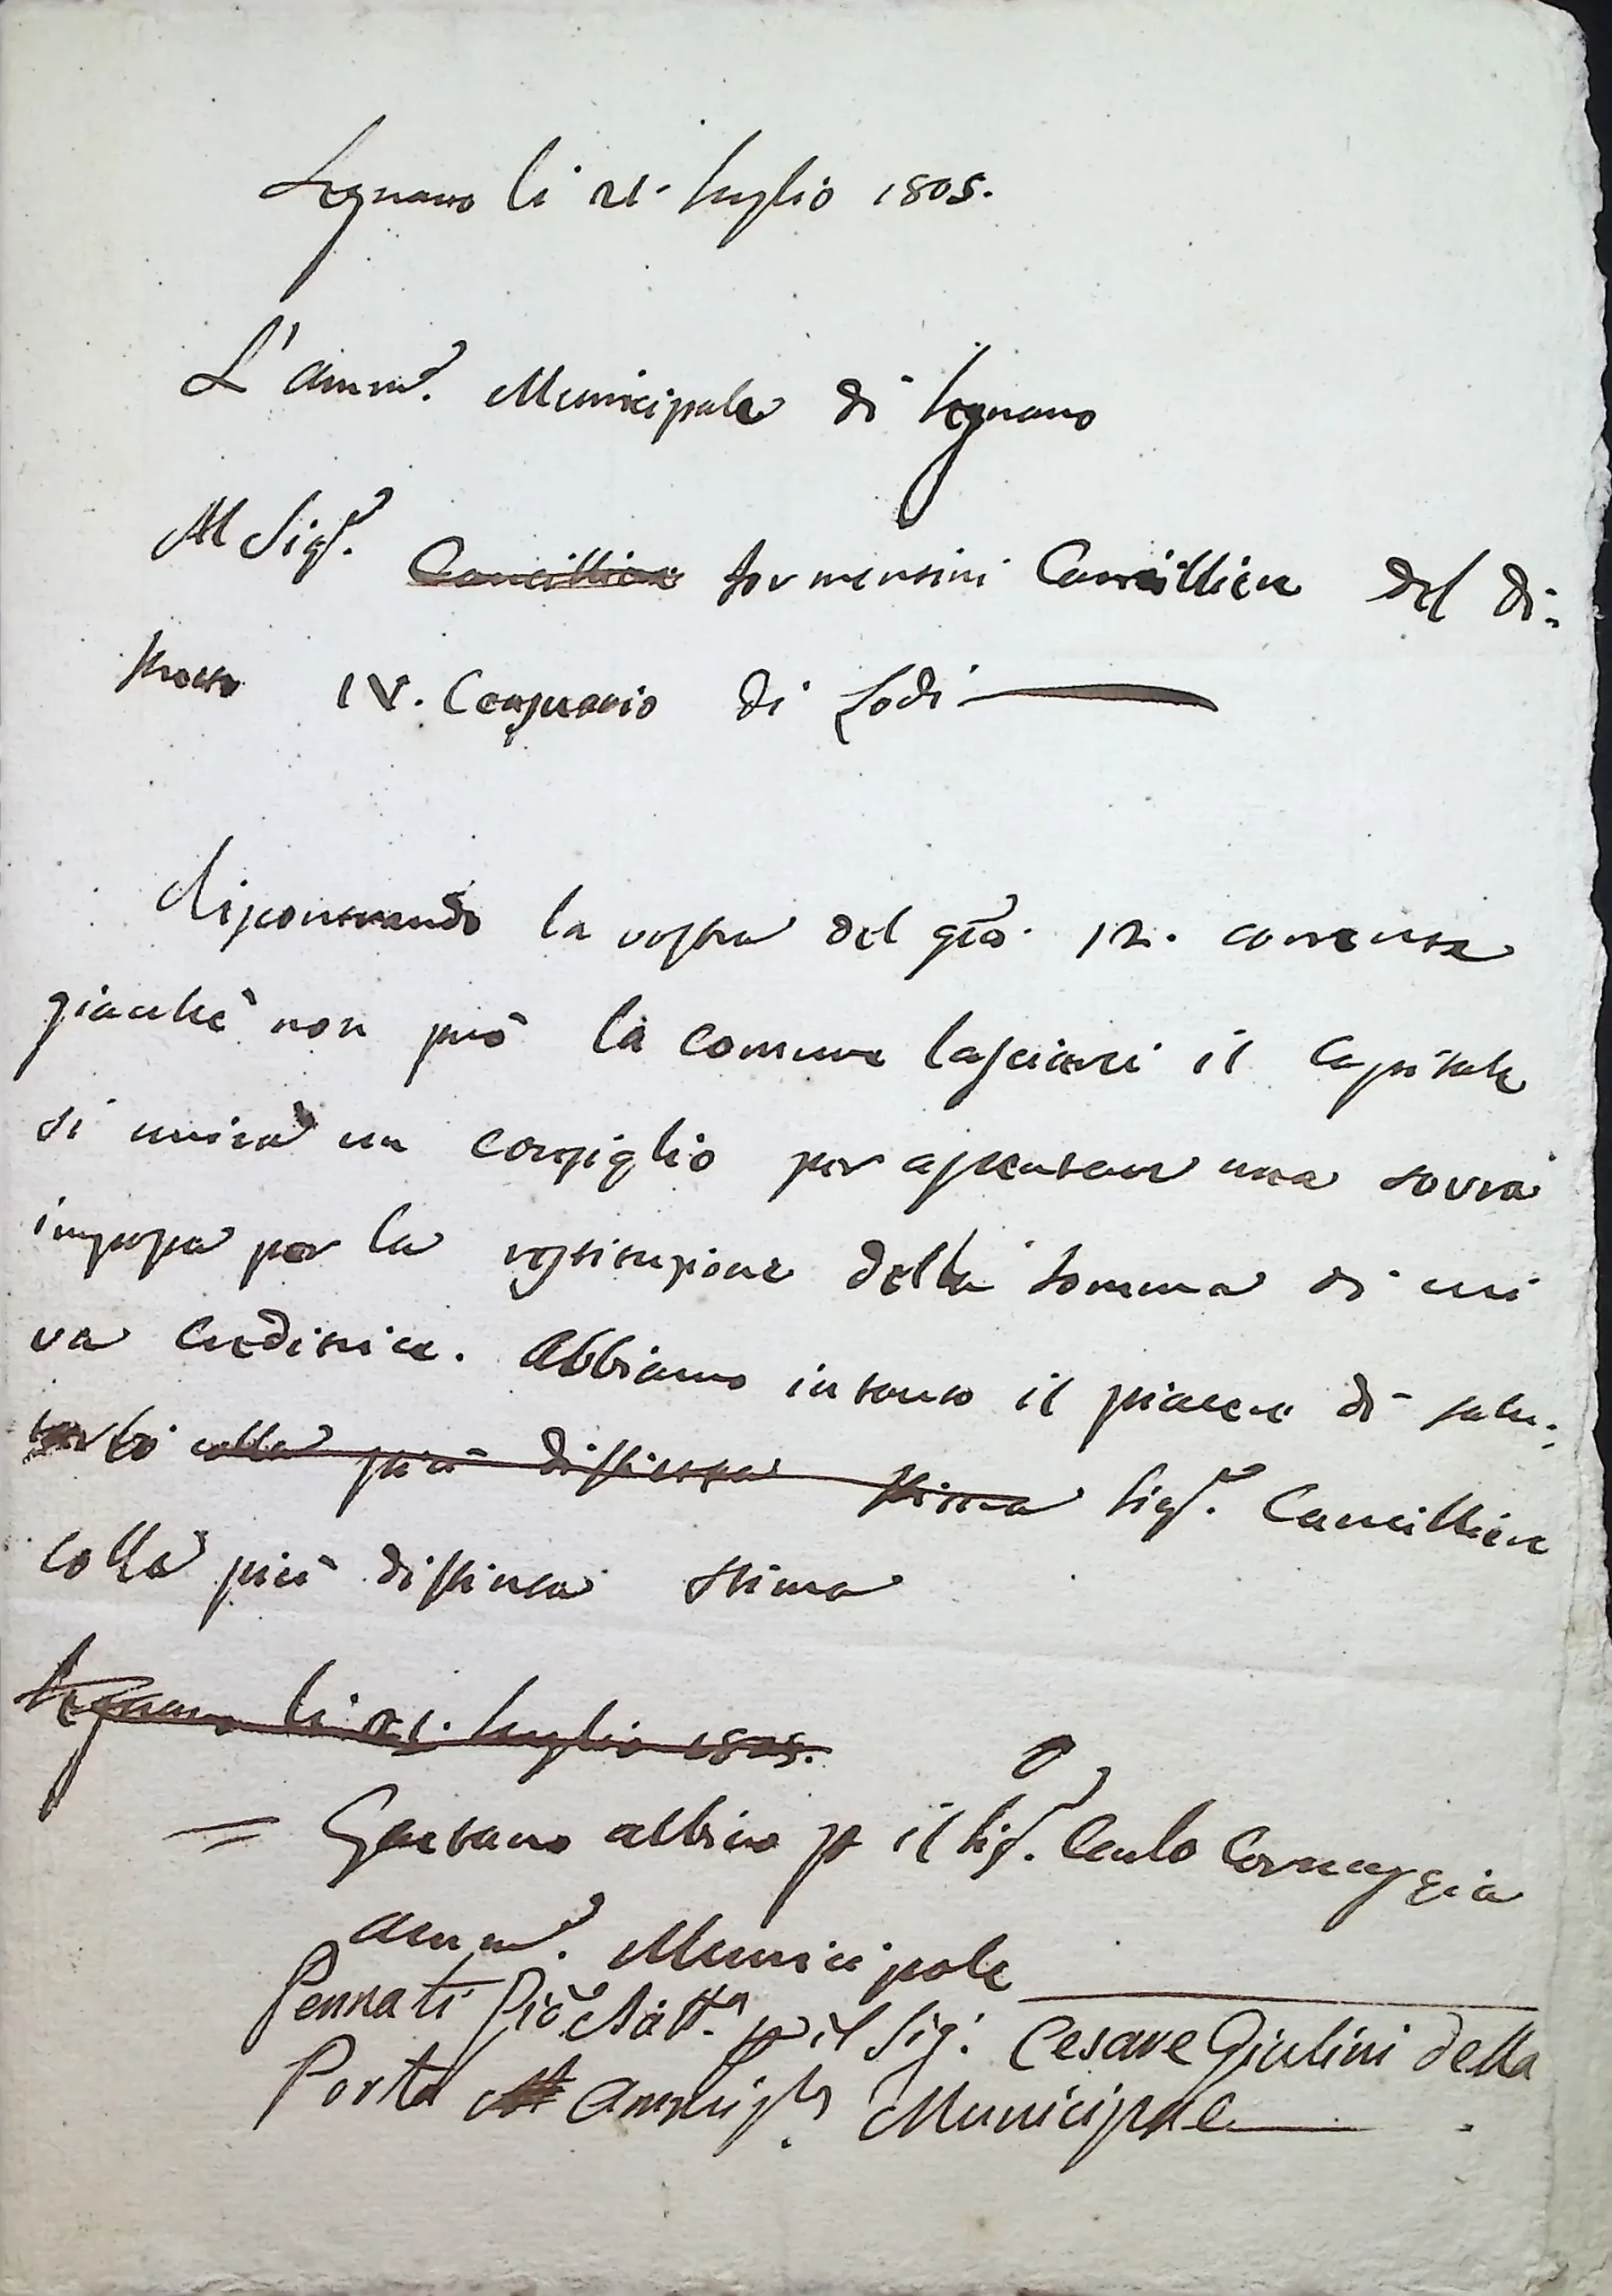 Legnano li 21. luglio 1805.
L'Amm.e Municipale di Legnano
Al Sig.r Cancelliere Tormentini Cancelliere del di=
stretto IV. Censuario di Lodi
Riscontrando la vostra del gno. 12. corrente
giacchè non può la comune lasciarci il capitale
si unirà un consiglio per assentare una sovra
imposta per la restituzione della somma di cui
va creditrice. Abbiamo intanto il piacere di salu=
tarvi colla più distinta stima Sig.r Cancelliere
colla più distinta stima
Legnano li 21. luglio 1805.
= Gaetano Albino p il Sig.r Carlo Cornaggia
Amm.e Municipale
Pennati Gio Batt.a p il Sig. Cesare Giulini della
Porta Municipale